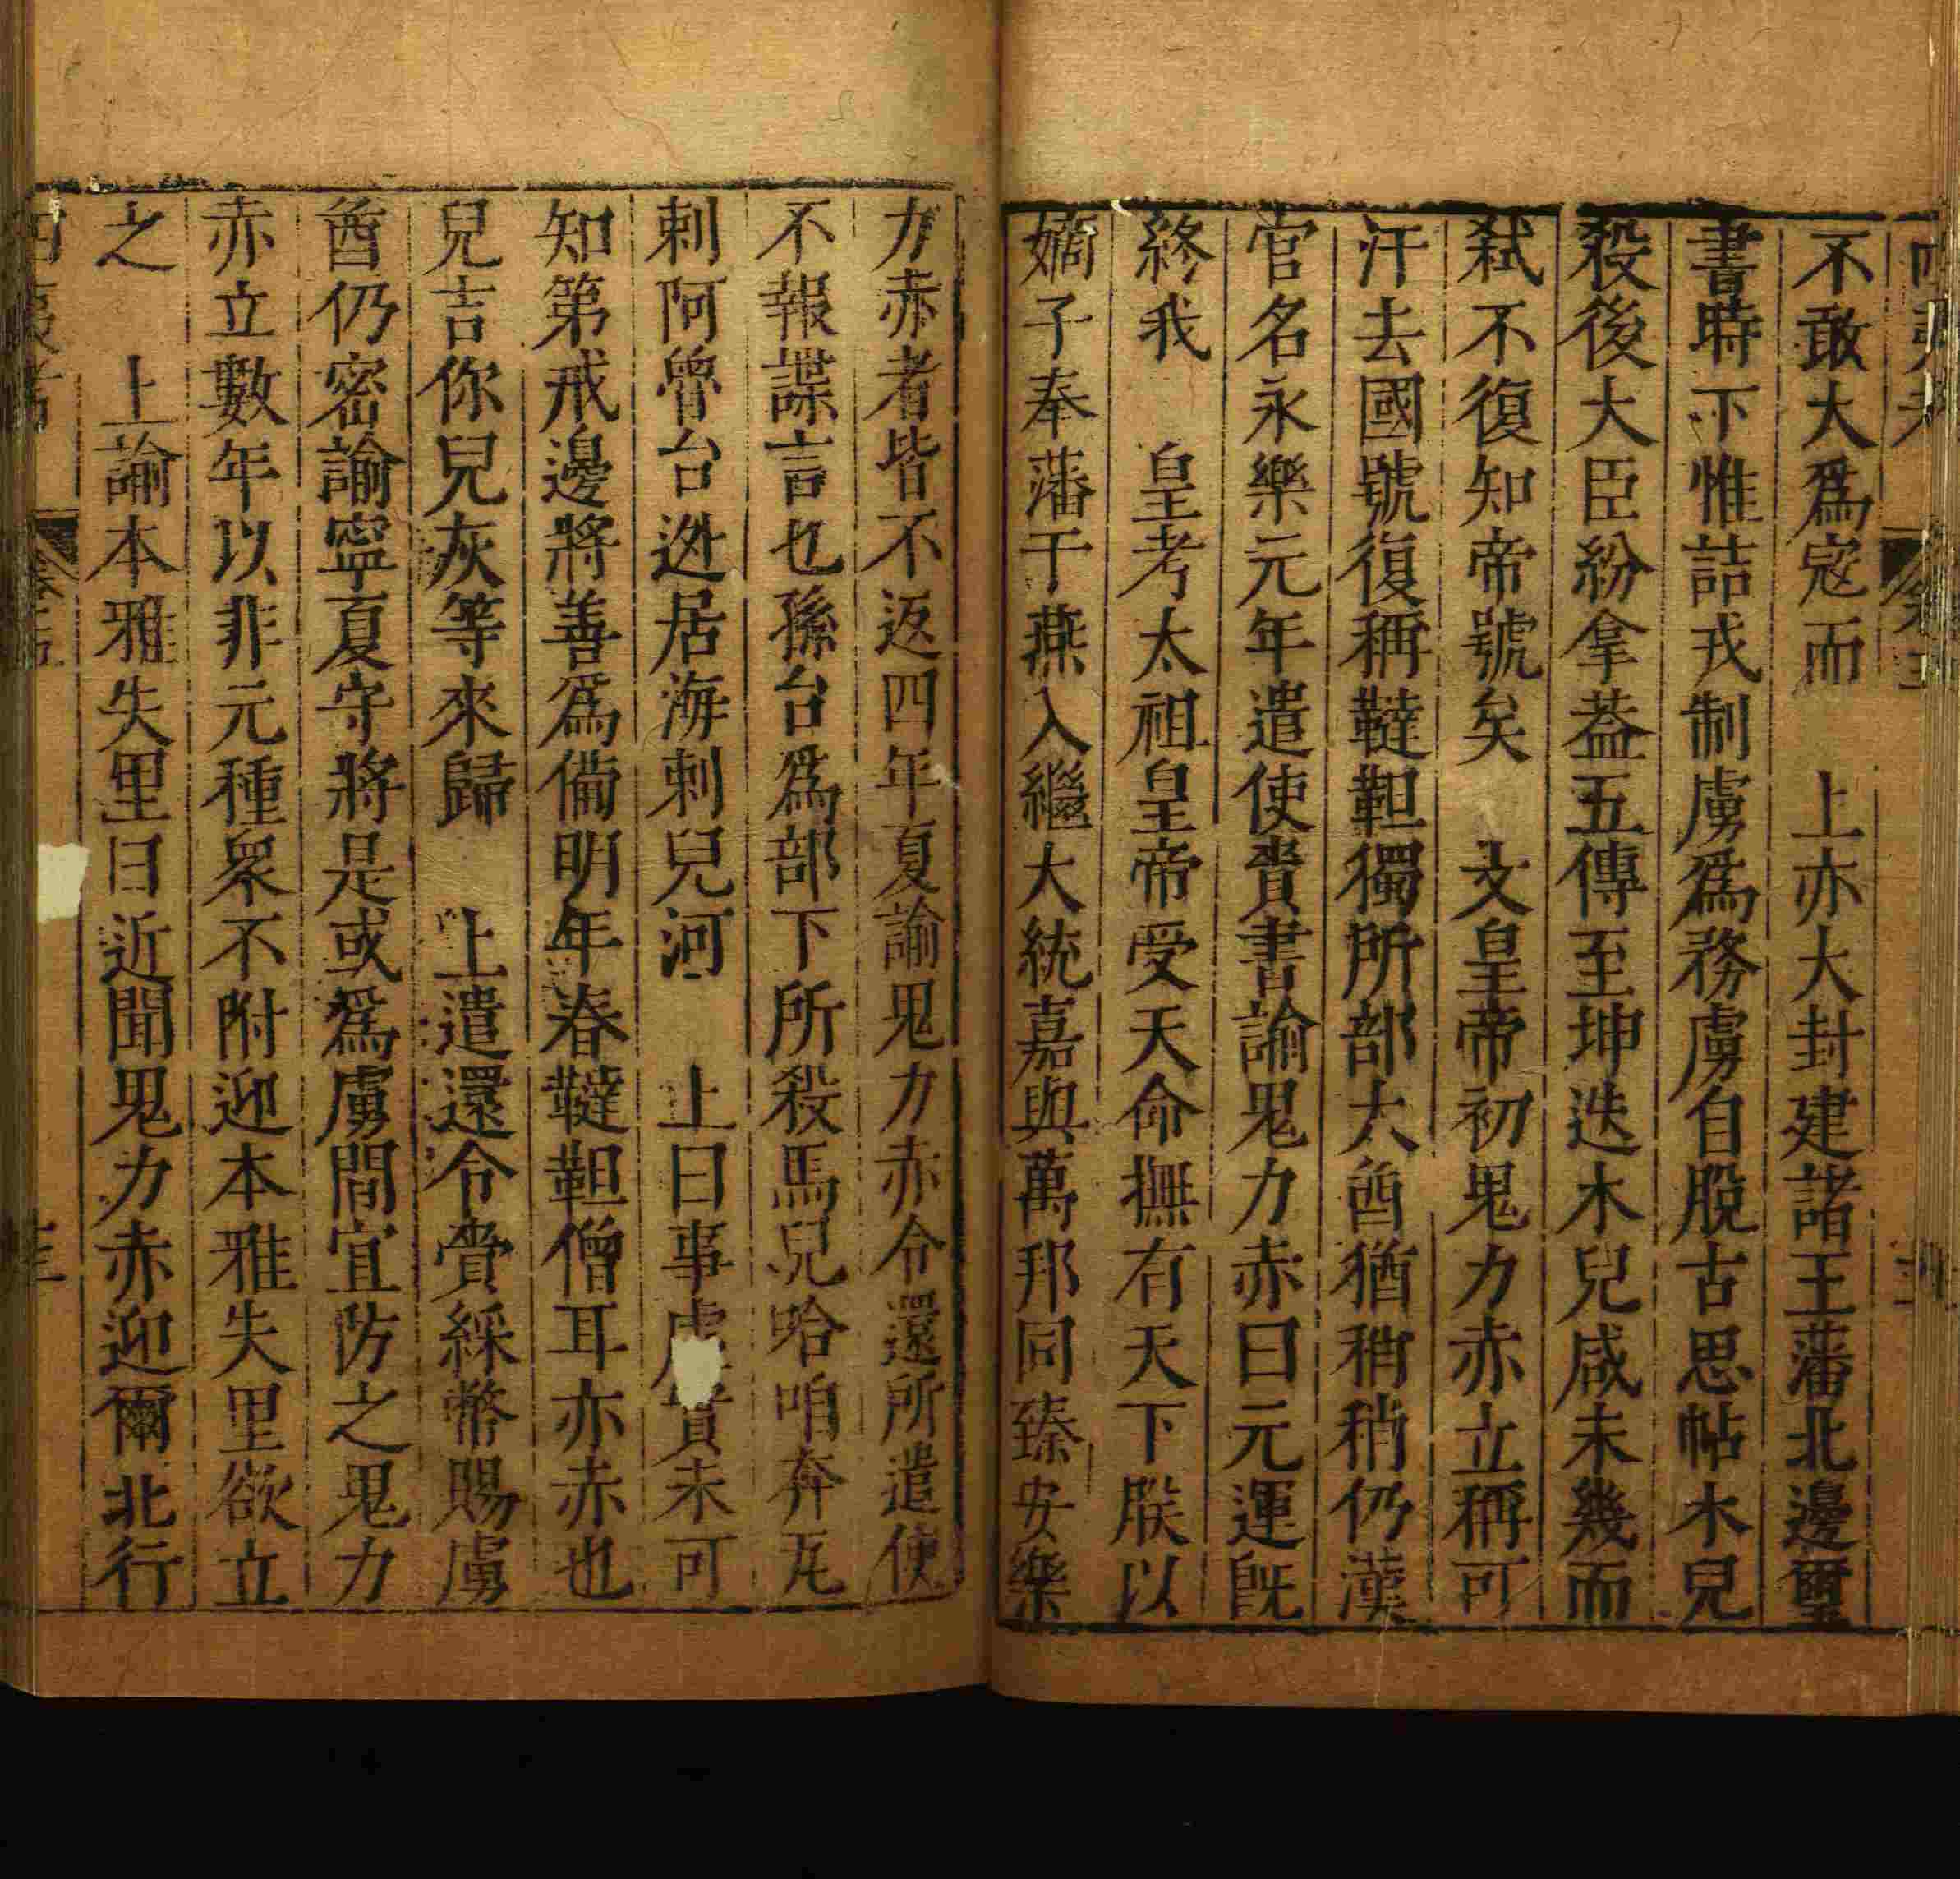 不敢大爲寇而　上亦大封建諸王藩北邊璽
書時下惟詰戎制虜爲務虜自脫古思帖木兒
殺後大臣紛拿葢五傳至坤迭木兒咸未幾而
弑不復知帝號矣　文皇帝初鬼力赤立稱可
汗去國號復稱韃靼獨所部太酋猶稍稍仍漢
官名永樂元年遣使賫書諭鬼力赤曰元運旣
終我　皇考太祖皇帝受天命撫有天下朕以
嫡子奉藩于燕入繼大統嘉與萬邦同臻安樂
力赤者皆不返四年夏諭鬼力赤令還所遣使
不報諜言乜孫台爲部下所殺馬兒哈咱奔瓦
剌阿魯台迯居海剌兒河　上曰事虛實未可
知第戒邊將善爲備明年春韃靼僧耳亦赤也
兒吉你兒灰等來歸　上遣還令賫綵幣賜虜
酋仍密諭寧夏守將是或爲虜間宜防之鬼力
赤立數年以非元種衆不附迎本雅失里欲立
之　上諭本雅失里曰近聞鬼力赤迎爾北行